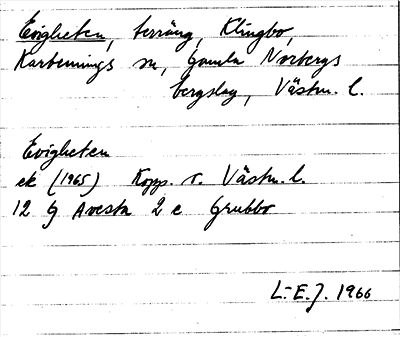 Evigheten, terräng, Klingbo,
Karbennings sn, Gamla Norbergs
bergslag, Västm. l.
Evigheten
ek (1965) Kopp. o. Västm. l.
12 G Avesta 2 c Grubbo
L-E. J. 1966